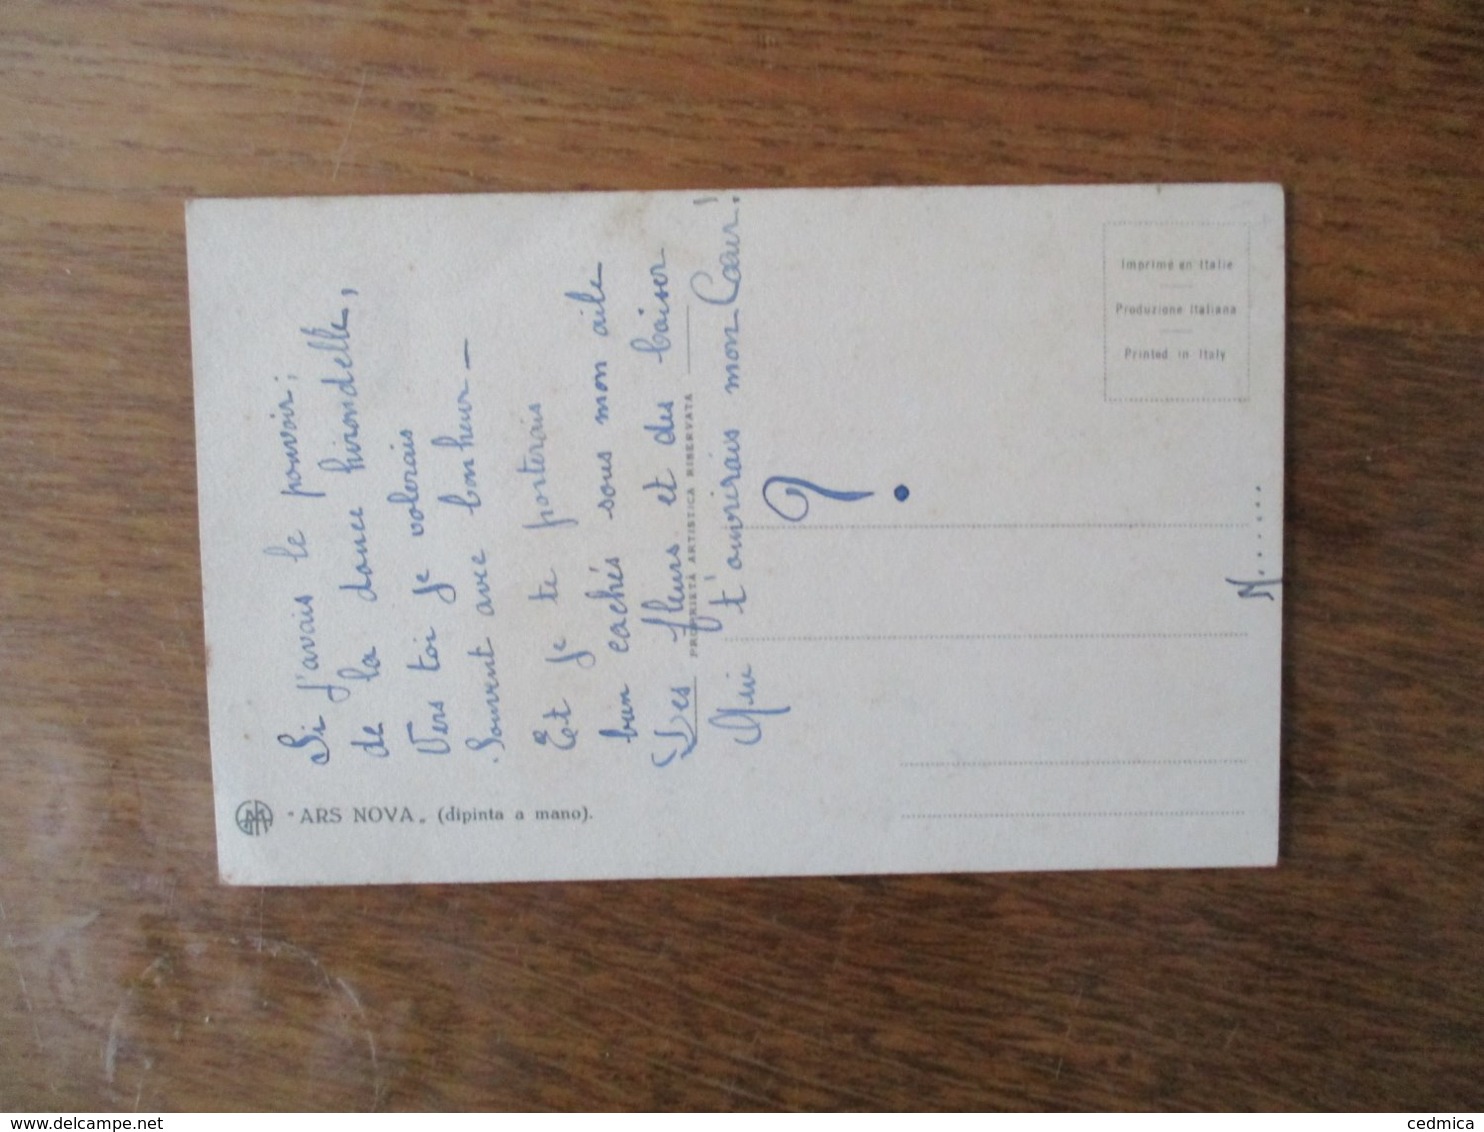 Si j'avais le pouvoir;
de la douce hirondelle,
Vers toi je volerais
Souvent avec bonheur –
Et je te porterais
bien cachés sous mon aile
Des fleurs et des baiser
Qui t'ouvrirais mon Cœur!
?
N.......
"ARS NOVA„ (dipinta a mano).
PROPRIETÀ ARTISTICA RISERVATA
Imprimé en Italie
Produzione Italiana
Printed in Italy
delcampe.net
cedmica